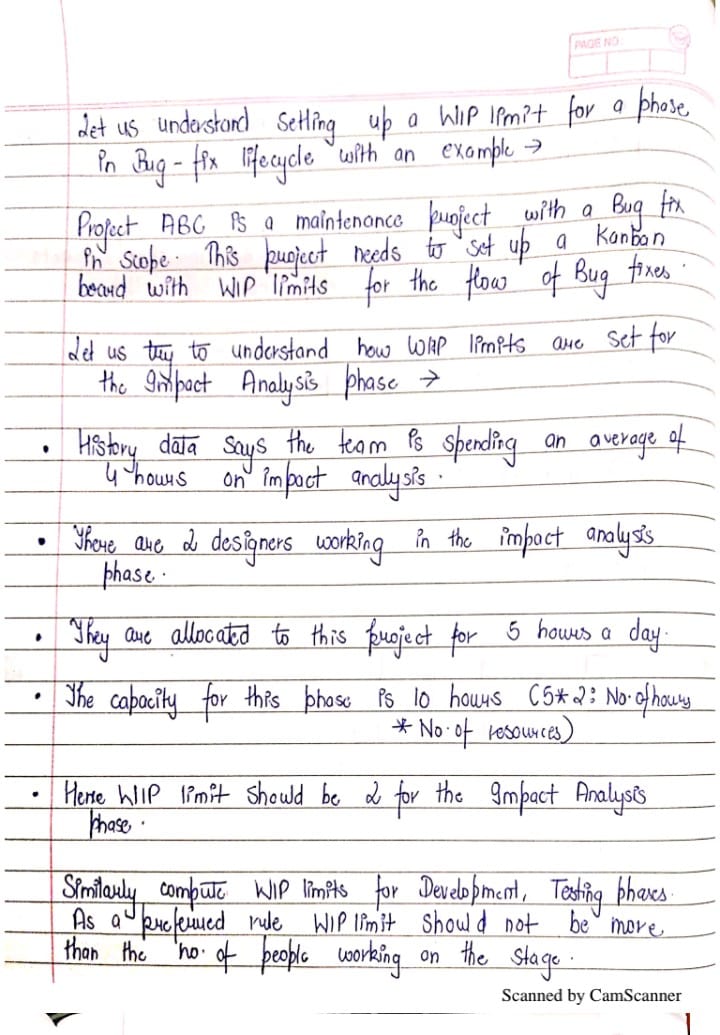 PAGE NO.
Let us understand setting up a WIP limit for a phase
in Bug-fix lifecycle with an example →
Project ABC is a maintenance project with a Bug fix
in scope. This project needs to set up a Kanban
board with WIP limits for the flow of Bug fixes.
Let us try to understand how WIP limits are set for
the Impact Analysis phase →
• History data says the team is spending an average of
4 hours on impact analysis.
• There are 2 designers working in the impact analysis
phase.
• They are allocated to this project for 5 hours a day.
• The capacity for this phase is 10 hours (5*2: No. of hours
* No. of resources)
• Here WIP limit should be 2 for the Impact Analysis
phase.
Similarly compute WIP limits for Development, Testing phases.
As a preferred rule WIP limit should not be more
than the no. of people working on the stage.
Scanned by CamScanner